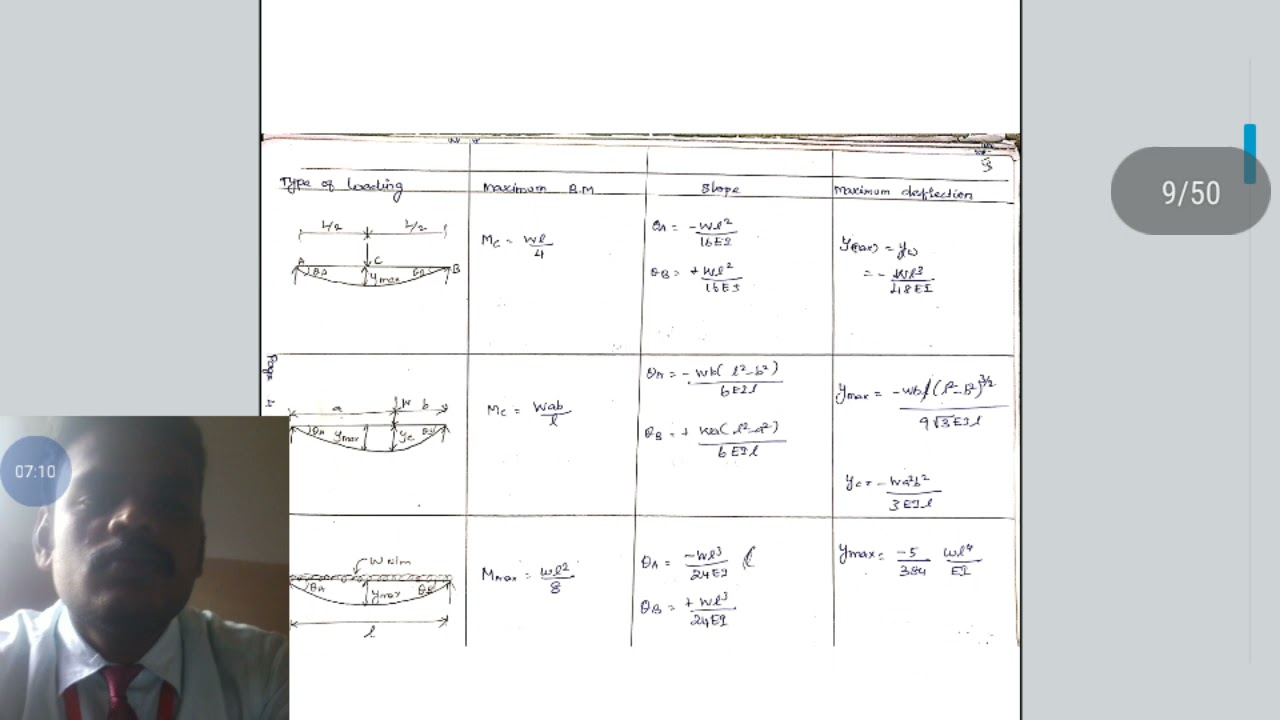 9/50
07:10
Type of loading
Maximum B.M
Slope
Maximum deflection
L/2 L/2
A C B
θA ymax θB
Mc = Wl/4
θA = -Wl²/16EI
θB = +Wl²/16EI
y(max) = yc
= -Wl³/48EI
Page
a W b
θA ymax yc θB
Mc = Wab/l
θA = -Wb(l²-b²)/6EIl
θB = + Wa(l²-a²)/6EIl
ymax = -Wb(l²-b²)^3/2/9√3EIl
yc = -Wa²b²/3EIl
W N/m
θA ymax θB
l
Mmax = wl²/8
θA = -Wl³/24EI
θB = +Wl³/24EI
ymax = -5/384 wl⁴/EI